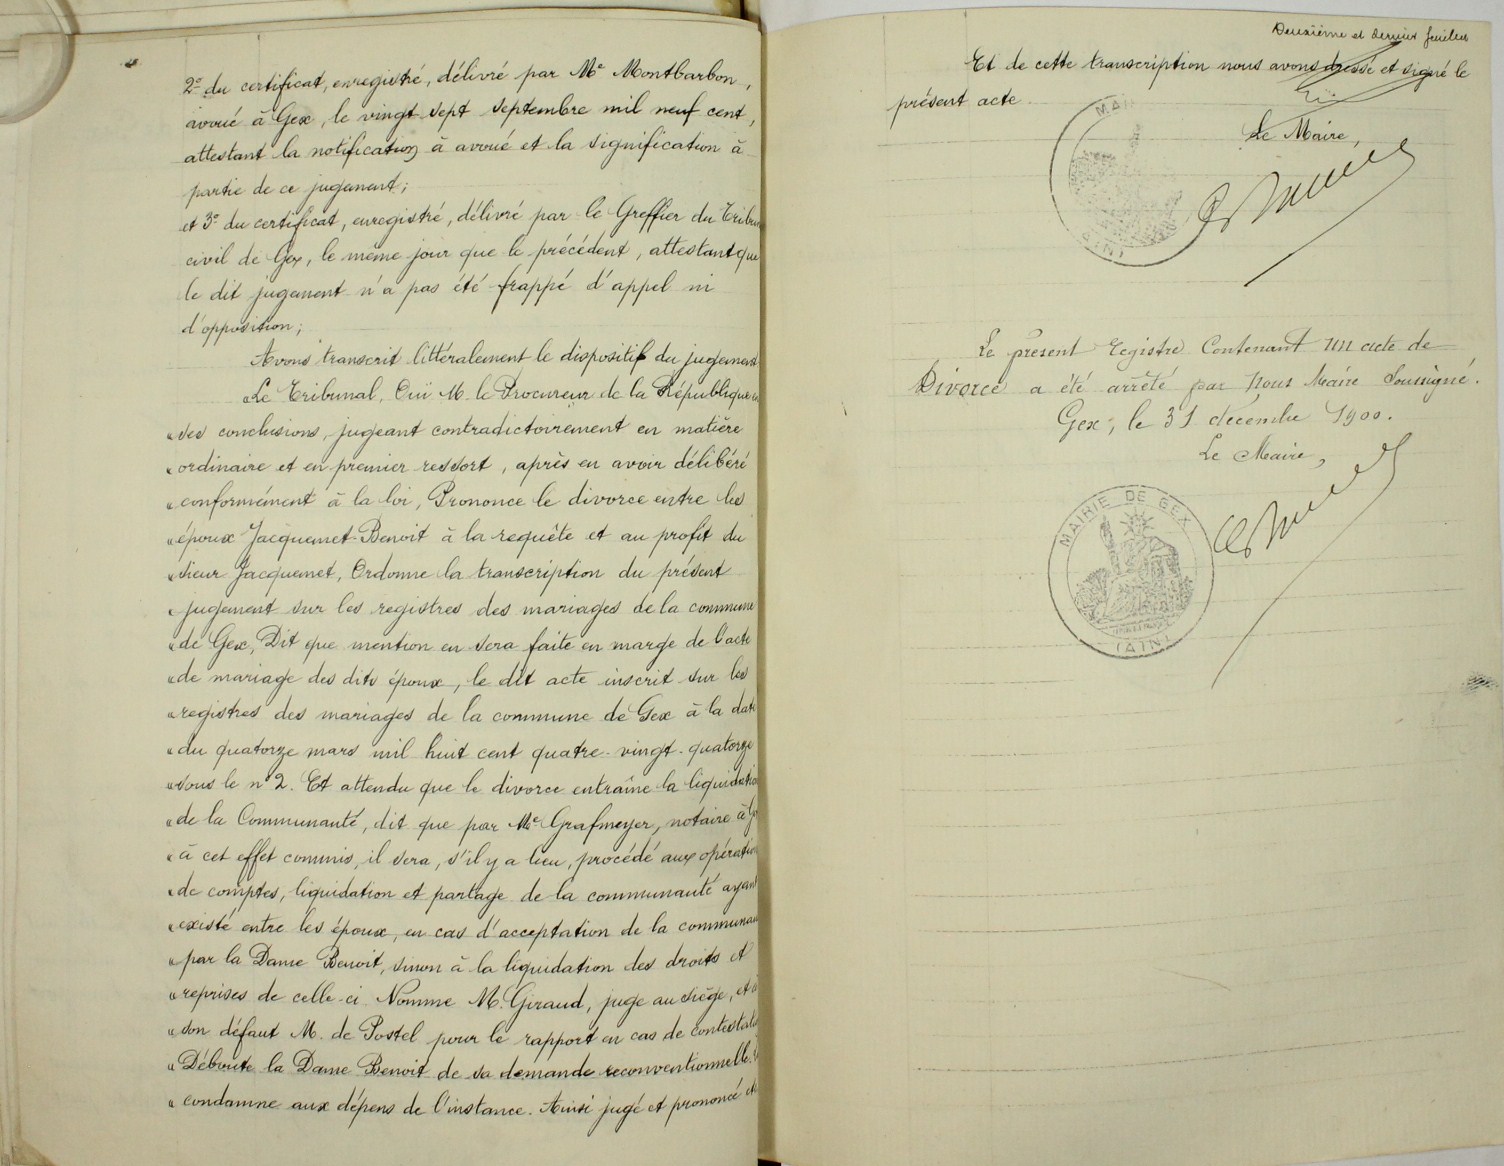 2° du certificat, enregistré, délivré par Me Montbarbon,
avoué à Gex, le vingt sept septembre mil neuf cent,
attestant la notification à avoué et la signification à
partie de ce jugement;
et 3° du certificat, enregistré, délivré par le Greffier du Tribun
civil de Gex, le même jour que le précédent, attestant que
le dit jugement n'a pas été frappé d'appel ni
d'opposition;
Avons transcrit littéralement le dispositif du jugement
"Le Tribunal, Ouï M. le Procureur de la République en
"ses conclusions, jugeant contradictoirement en matière
"ordinaire et en premier ressort, après en avoir délibéré
"conformément à la loi, Prononce le divorce entre les
"époux Jacquemet-Benoit à la requête et au profit du
"sieur Jacquemet, Ordonne la transcription du présent
"jugement sur les registres des mariages de la commune
"de Gex, Dit que mention en sera faite en marge de l'acte
"de mariage des dits époux, le dit acte inscrit sur les
"registres des mariages de la commune de Gex à la date
"du quatorze mars mil huit cent quatre-vingt-quatorze
"sous le n° 2. Et attendu que le divorce entraîne la liquidatio
"de la Communauté, dit que par Me Grafmeyer, notaire à Ge
"à cet effet commis, il sera, s'il y a lieu, procédé aux opération
"de comptes, liquidation et partage de la communauté ayant
"existé entre les époux, en cas d'acceptation de la communau
"par la Dame Benoit, sinon à la liquidation des droits et
"reprises de celle-ci Nomme M. Giraud, juge au siège, et à
"son défaut M. de Postel pour le rapport en cas de contestati
"Déboute la Dame Benoit de sa demande reconventionnelle.
"condamne aux dépens de l'instance. Ainsi jugé et prononcé et
Deuxième et dernier feuillet
Et de cette transcription nous avons dressé et signé le
présent acte.
MAI
Le Maire,
(AIN)
Le présent registre contenant un acte de
Divorce a été arrêté par nous Maire soussigné.
Gex, le 31 décembre 1900.
Le Maire,
MAIRIE DE GEX
(AIN)